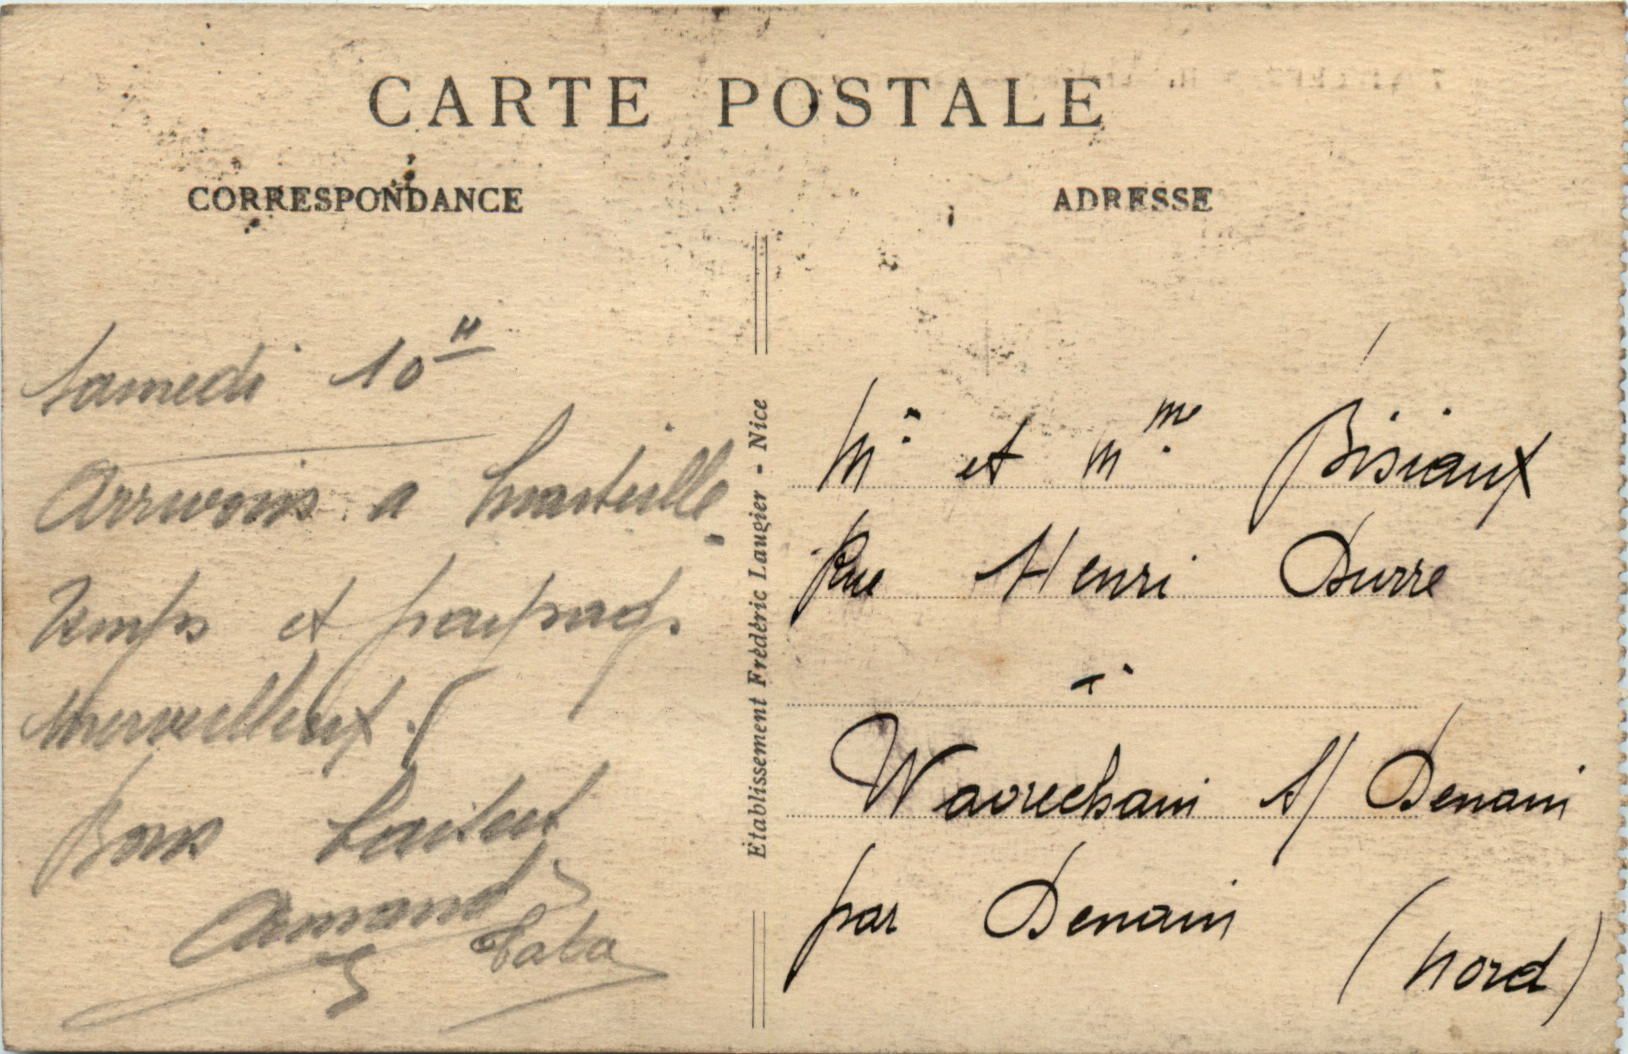 CARTE POSTALE
CORRESPONDANCE
Samedi 10H
Arrivons a Marseille.
Temps et paysag.
merveilleux.
Bons baisers
Armand
ADRESSE
Mr et Mme Bisiaux
Rue Henri Durre
à
Wavrechain s/ Denain
par Denain
(Nord)
Établissement Frédéric Laugier - Nice